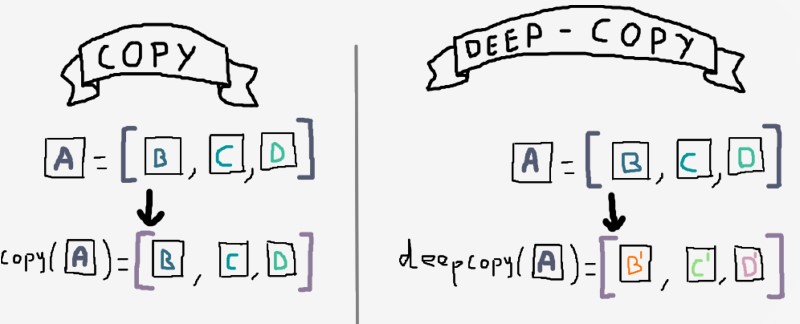 COPY
A = [ B , C , D ]
copy( A ) = [ B , C , D ]
DEEP - COPY
A = [ B , C , D ]
deepcopy( A ) = [ B' , C' , D' ]